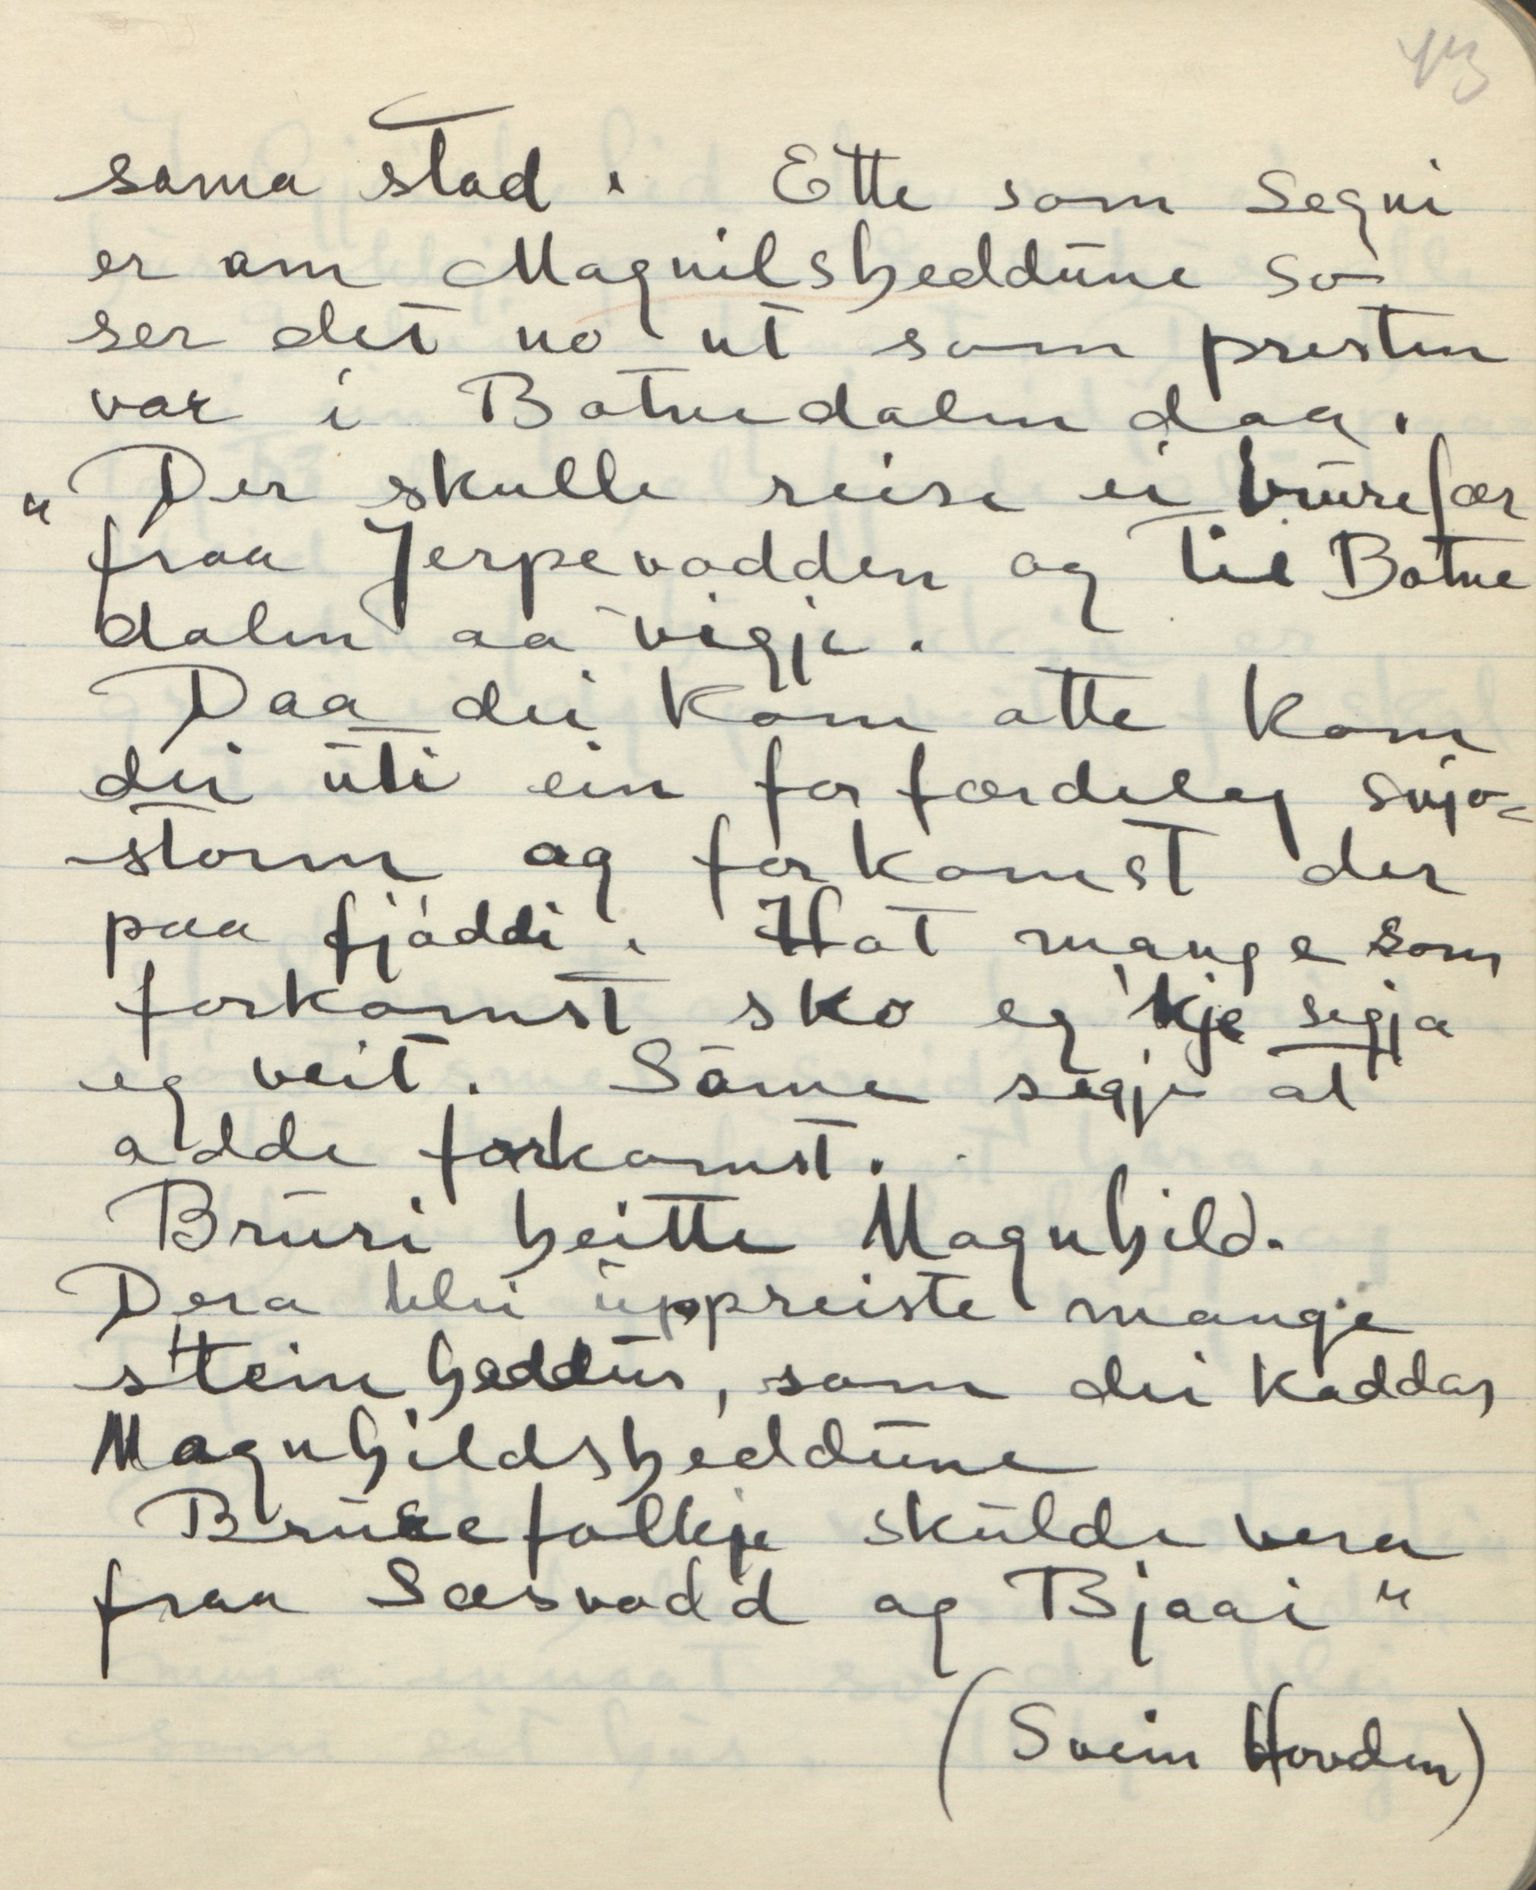 sama stad. Ette som Segni
er om Magnilsheddune so
ser det no ut som presten
var i Botnedalen daa.
"Der skulle reise ei brurefær
fraa Jerpevodden og til Botne
dalen aa vigje.
Daa dei kom atte kom
dei uti ein forfærdeleg snjo=
storm og forkomst der
paa fjøddi. Hot mange som
forkomst sko eg 'kje segja
eg veit. Sòme segje at
adde forkomst.
Bruri heitte Magnhild.
Dera blei uppreiste mange
steinheddur, som dei kaddar
Magnhildsheddune
Brurefolkje skulde vera
fraa Sæsvadd og Bjaai"
(Svein Hovden)